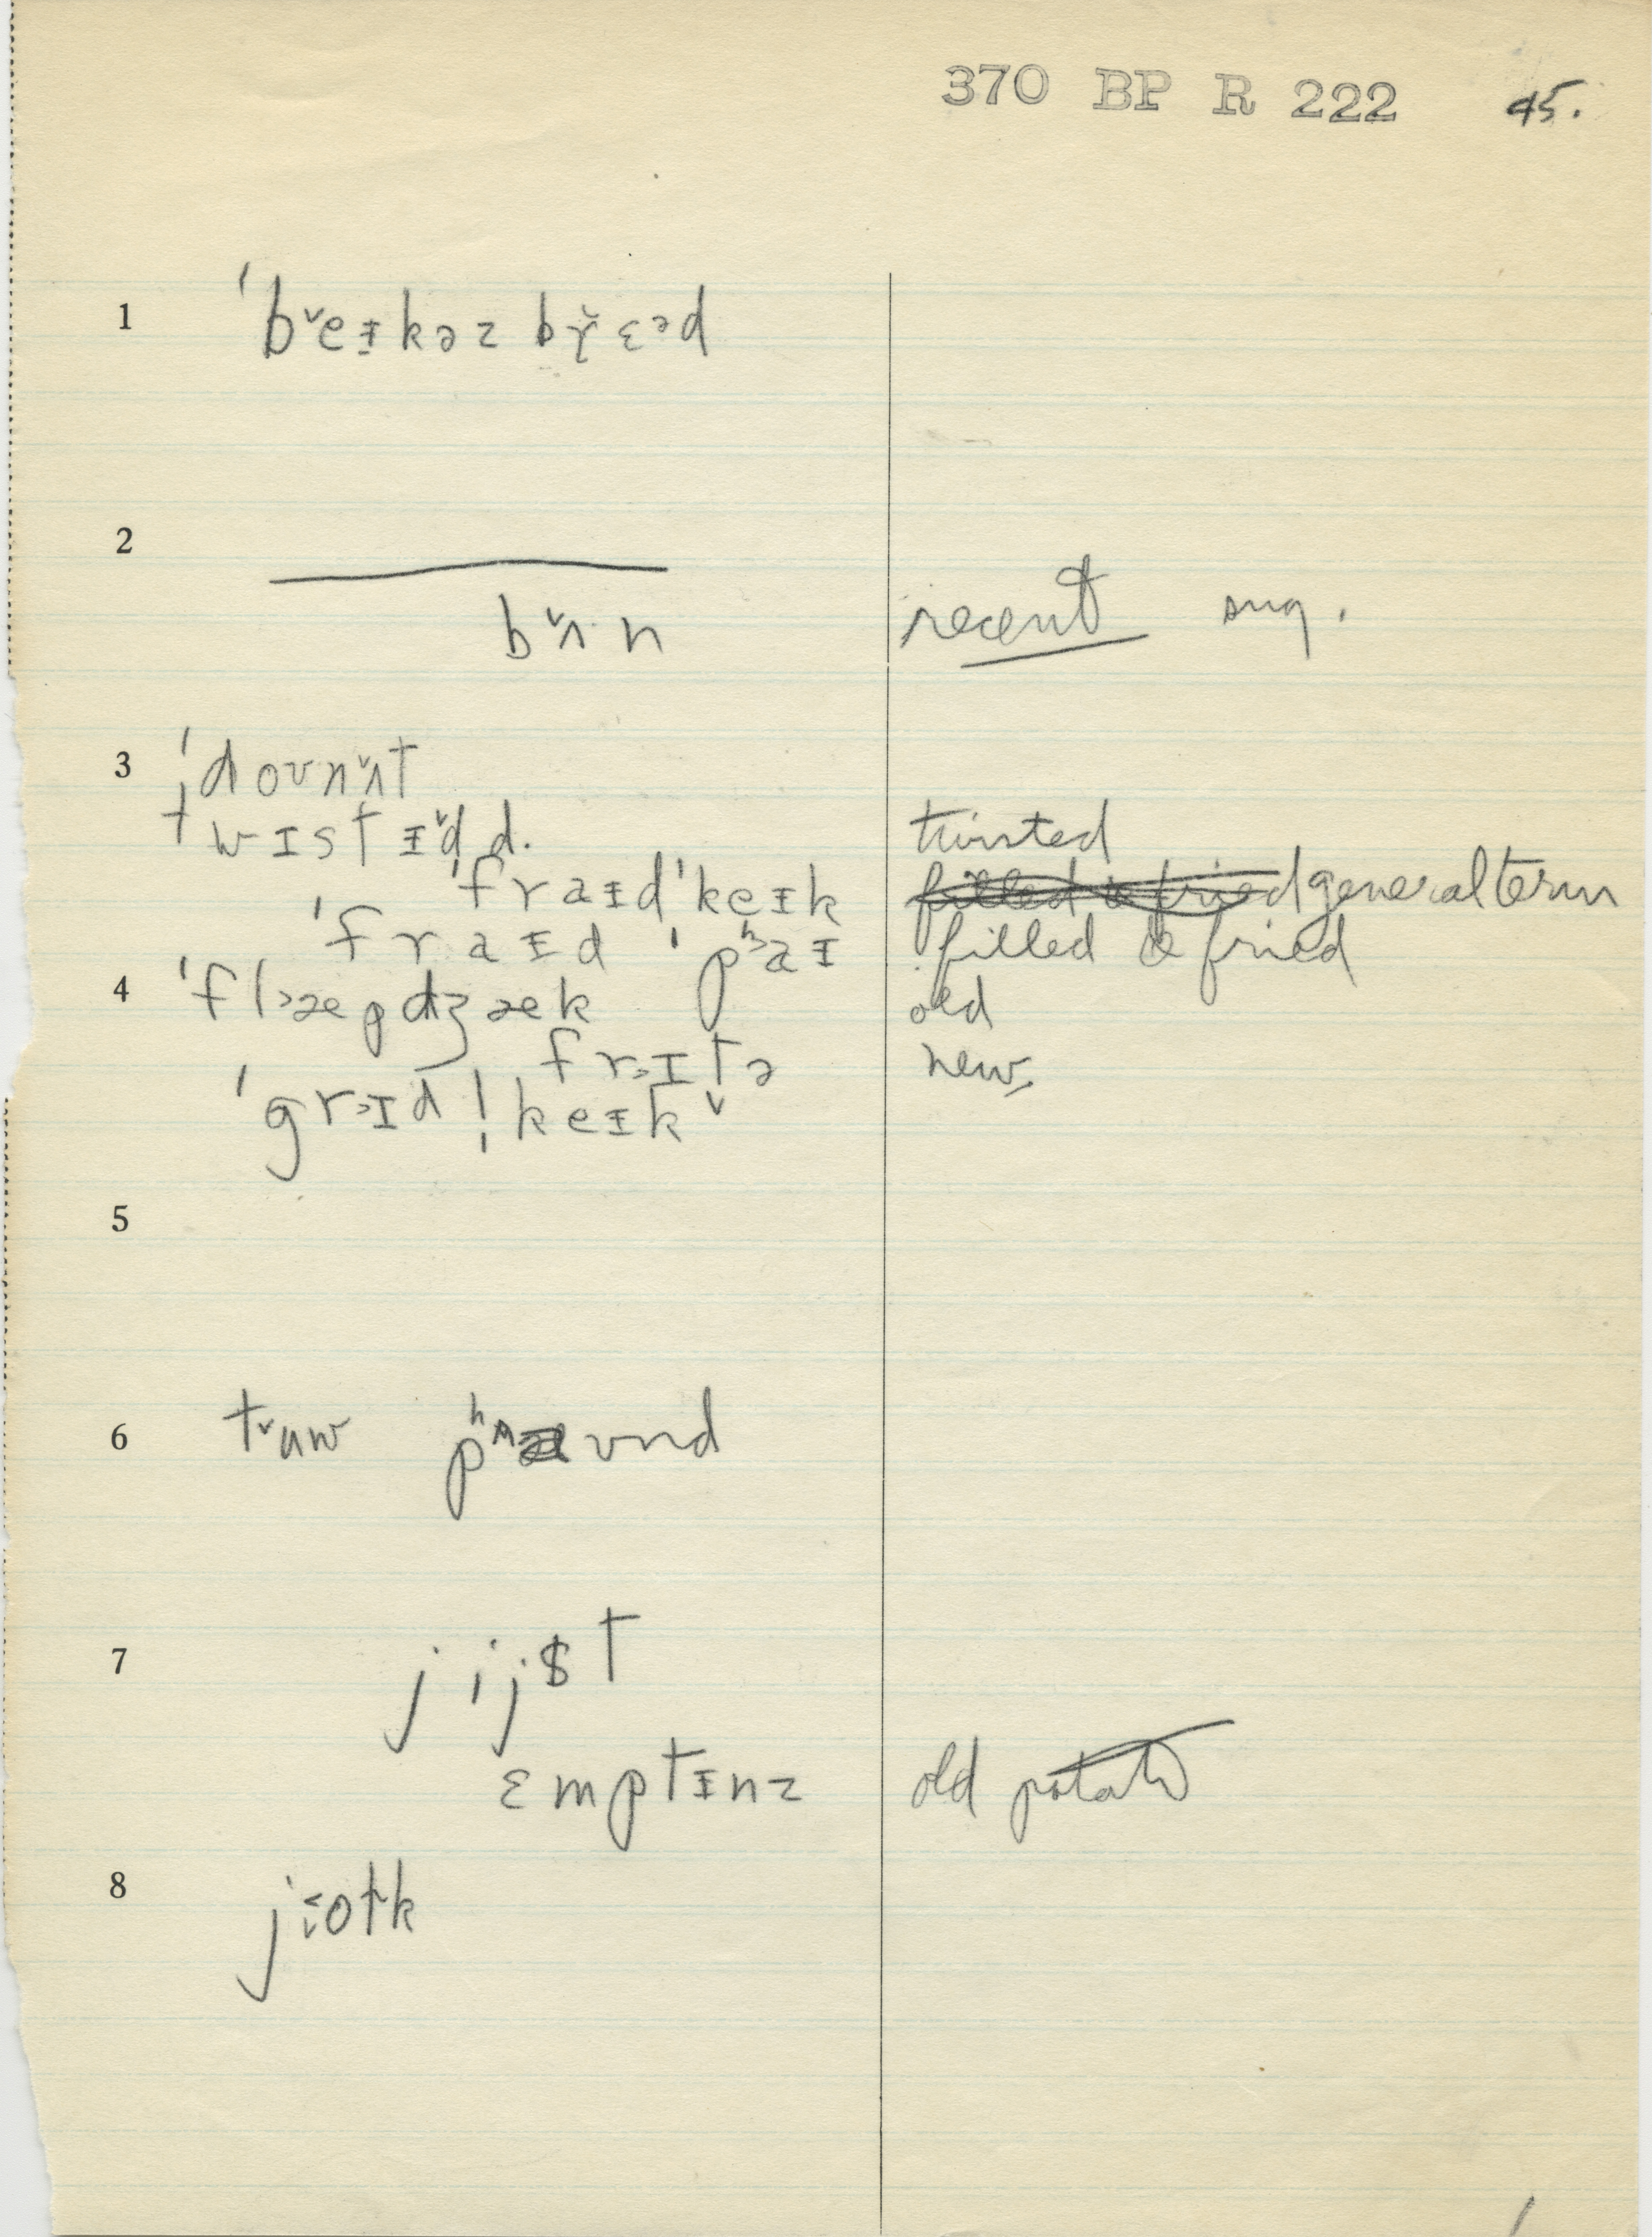 370 BP R 222 45.
1 ˈb˅eɪkəz br̆ɛᵊd
2
b˅ʌn recent sug.
3 ˈdoʊn˅ʌt
ˈtwɪstɪ˅d d. twisted
ˈfraɪdˈkeɪk filled & fried general term
ˈfraɪd ˈpʰ˃aɪ filled & fried
4 ˈfl˃æpdʒæk old
fr˃ɪtə new
ˈgr˃ɪdl̩keɪk
5
6 t˅uw pʰʌʊnd
7 jijst
ɛmptɪnz old potato
8 joʊk